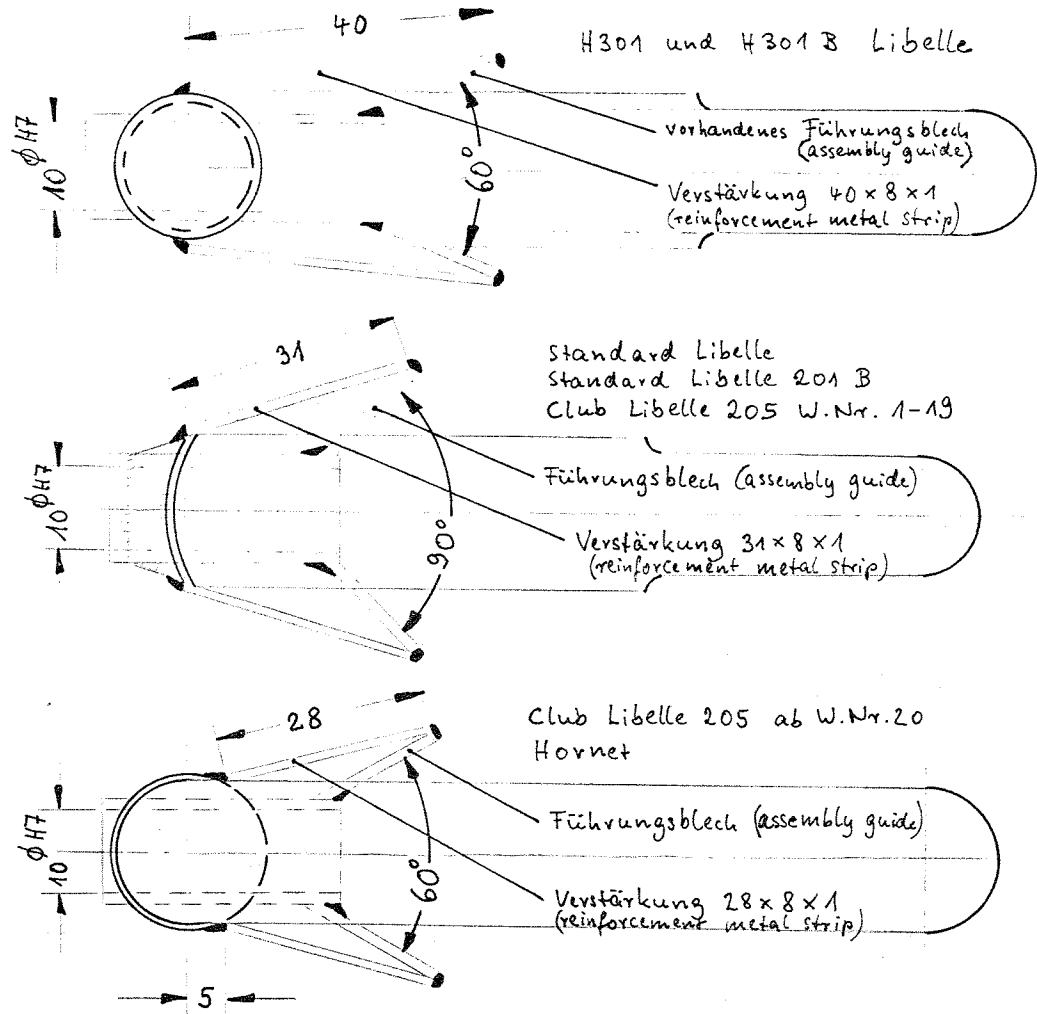 40
H301 und H301B Libelle
10 ϕ H7
60°
vorhandenes Führungsblech
(assembly guide)
Verstärkung 40 × 8 × 1
(reinforcement metal strip)
31
Standard Libelle
Standard Libelle 201 B
Club Libelle 205 W.Nr. 1-19
10 ϕ H7
90°
Führungsblech (assembly guide)
Verstärkung 31 × 8 × 1
(reinforcement metal strip)
28
Club Libelle 205 ab W.Nr. 20
Hornet
10 ϕ H7
60°
Führungsblech (assembly guide)
Verstärkung 28 × 8 × 1
(reinforcement metal strip)
5